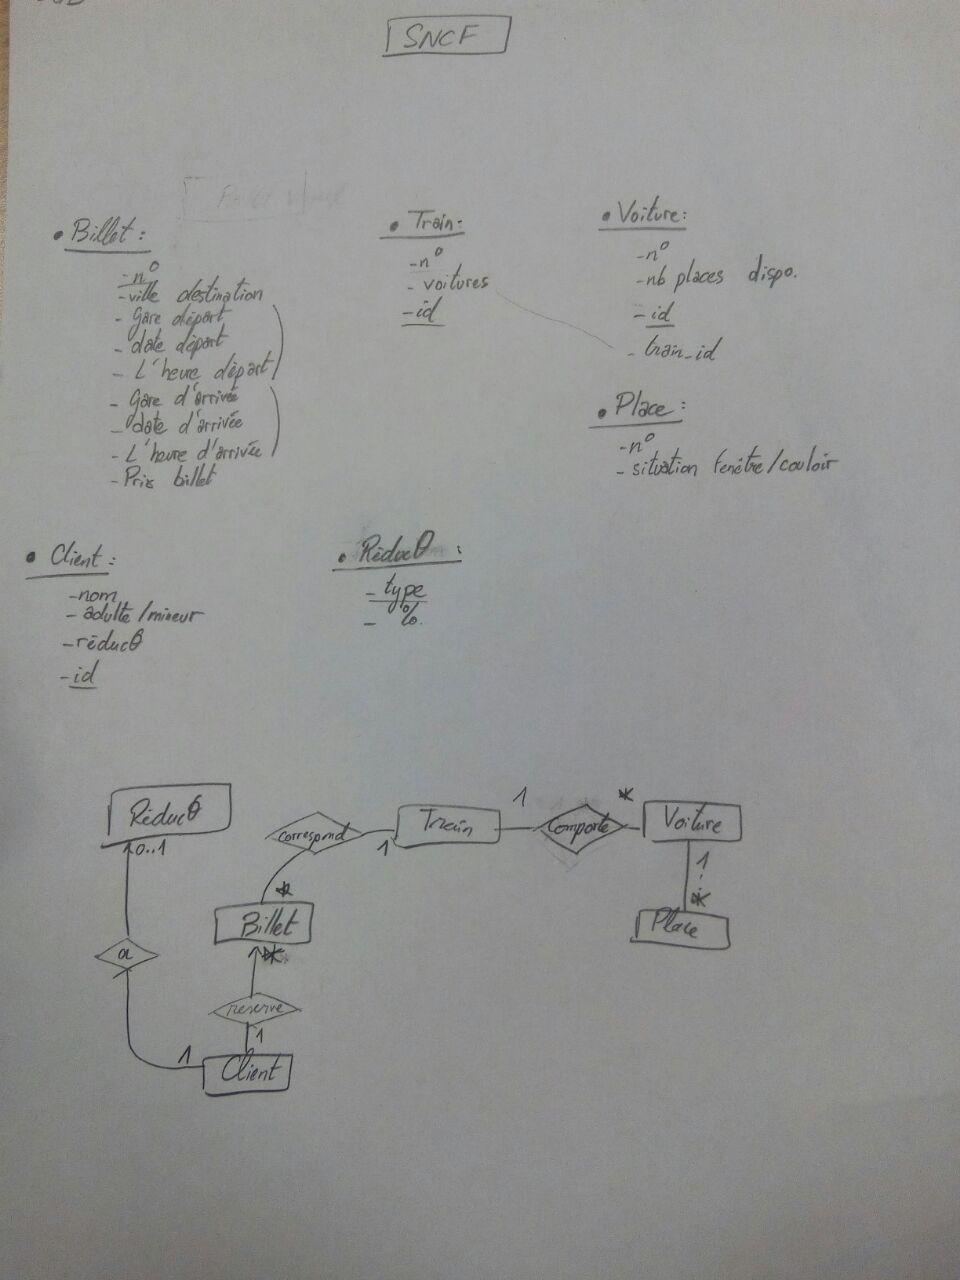 SNCF
• Billet :
- n°
- ville destination
- Gare départ
- date départ
- L'heure départ
- Gare d'arrivée
- date d'arrivée
- L'heure d'arrivée
- Prix billet
• Train :
- n°
- voitures
- id
• Voiture :
- n°
- nb places dispo.
- id
- train_id
• Place :
- n°
- situation fenêtre/couloir
• Client :
- nom
- adulte/mineur
- réducθ
- id
• Réducθ :
- type
- %.
Réducθ
0..1
correspond
1
Train
1
Comporte
*
Voiture
1
*
Place
*
Billet
*
a
reserve
1
1
Client